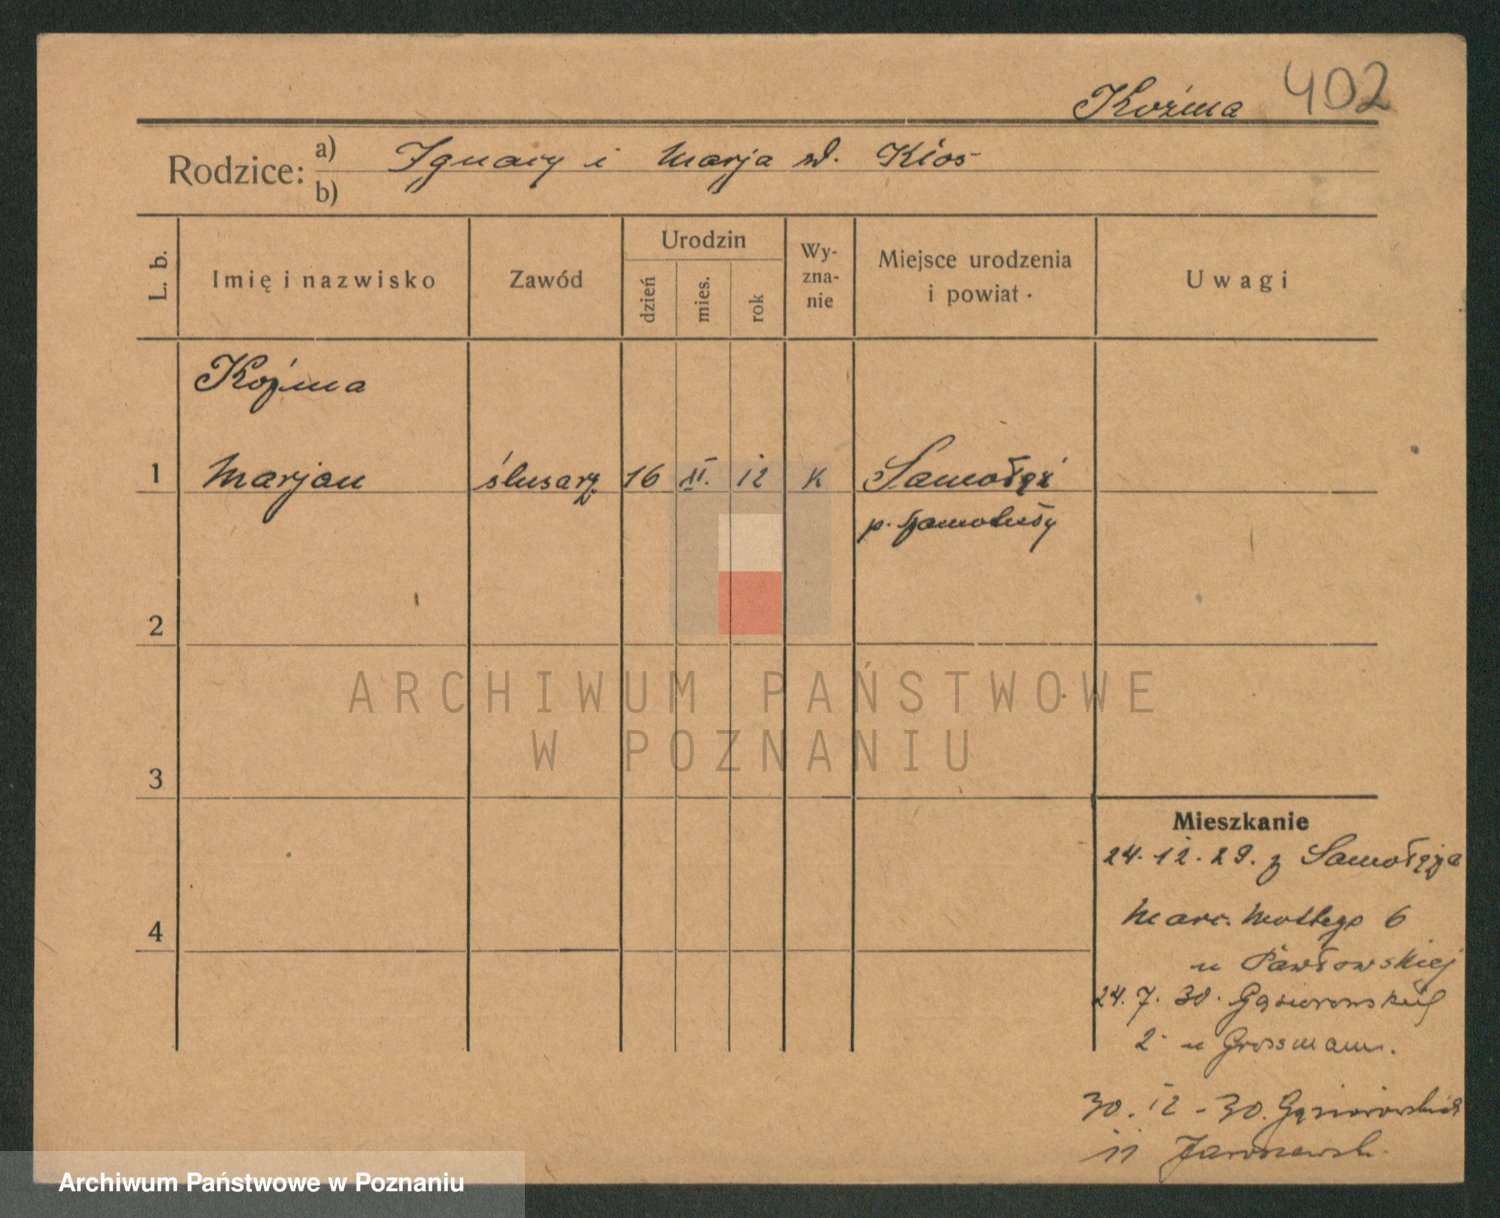 Koźma 402
Rodzice: a) Ignacy i Marja zd. Kłos
b)
L. b.
Imię i nazwisko
Zawód
Urodzin
dzień
mies.
rok
Wy-
zna-
nie
Miejsce urodzenia
i powiat
Uwagi
Koźma
1 Marjan ślusarz 16 12 K Samołęż
p. Szamotuły
2
ARCHIWUM PAŃSTWOWE
W POZNANIU
3
Mieszkanie
24.12.29. z Samołęża
4
Marc. Mottego 6
u Pawłowskiej
24.7.30. Gąsiorowskich
2 u Grossmann.
30.12-30. Gąsiorowskich
11
Archiwum Państwowe w Poznaniu